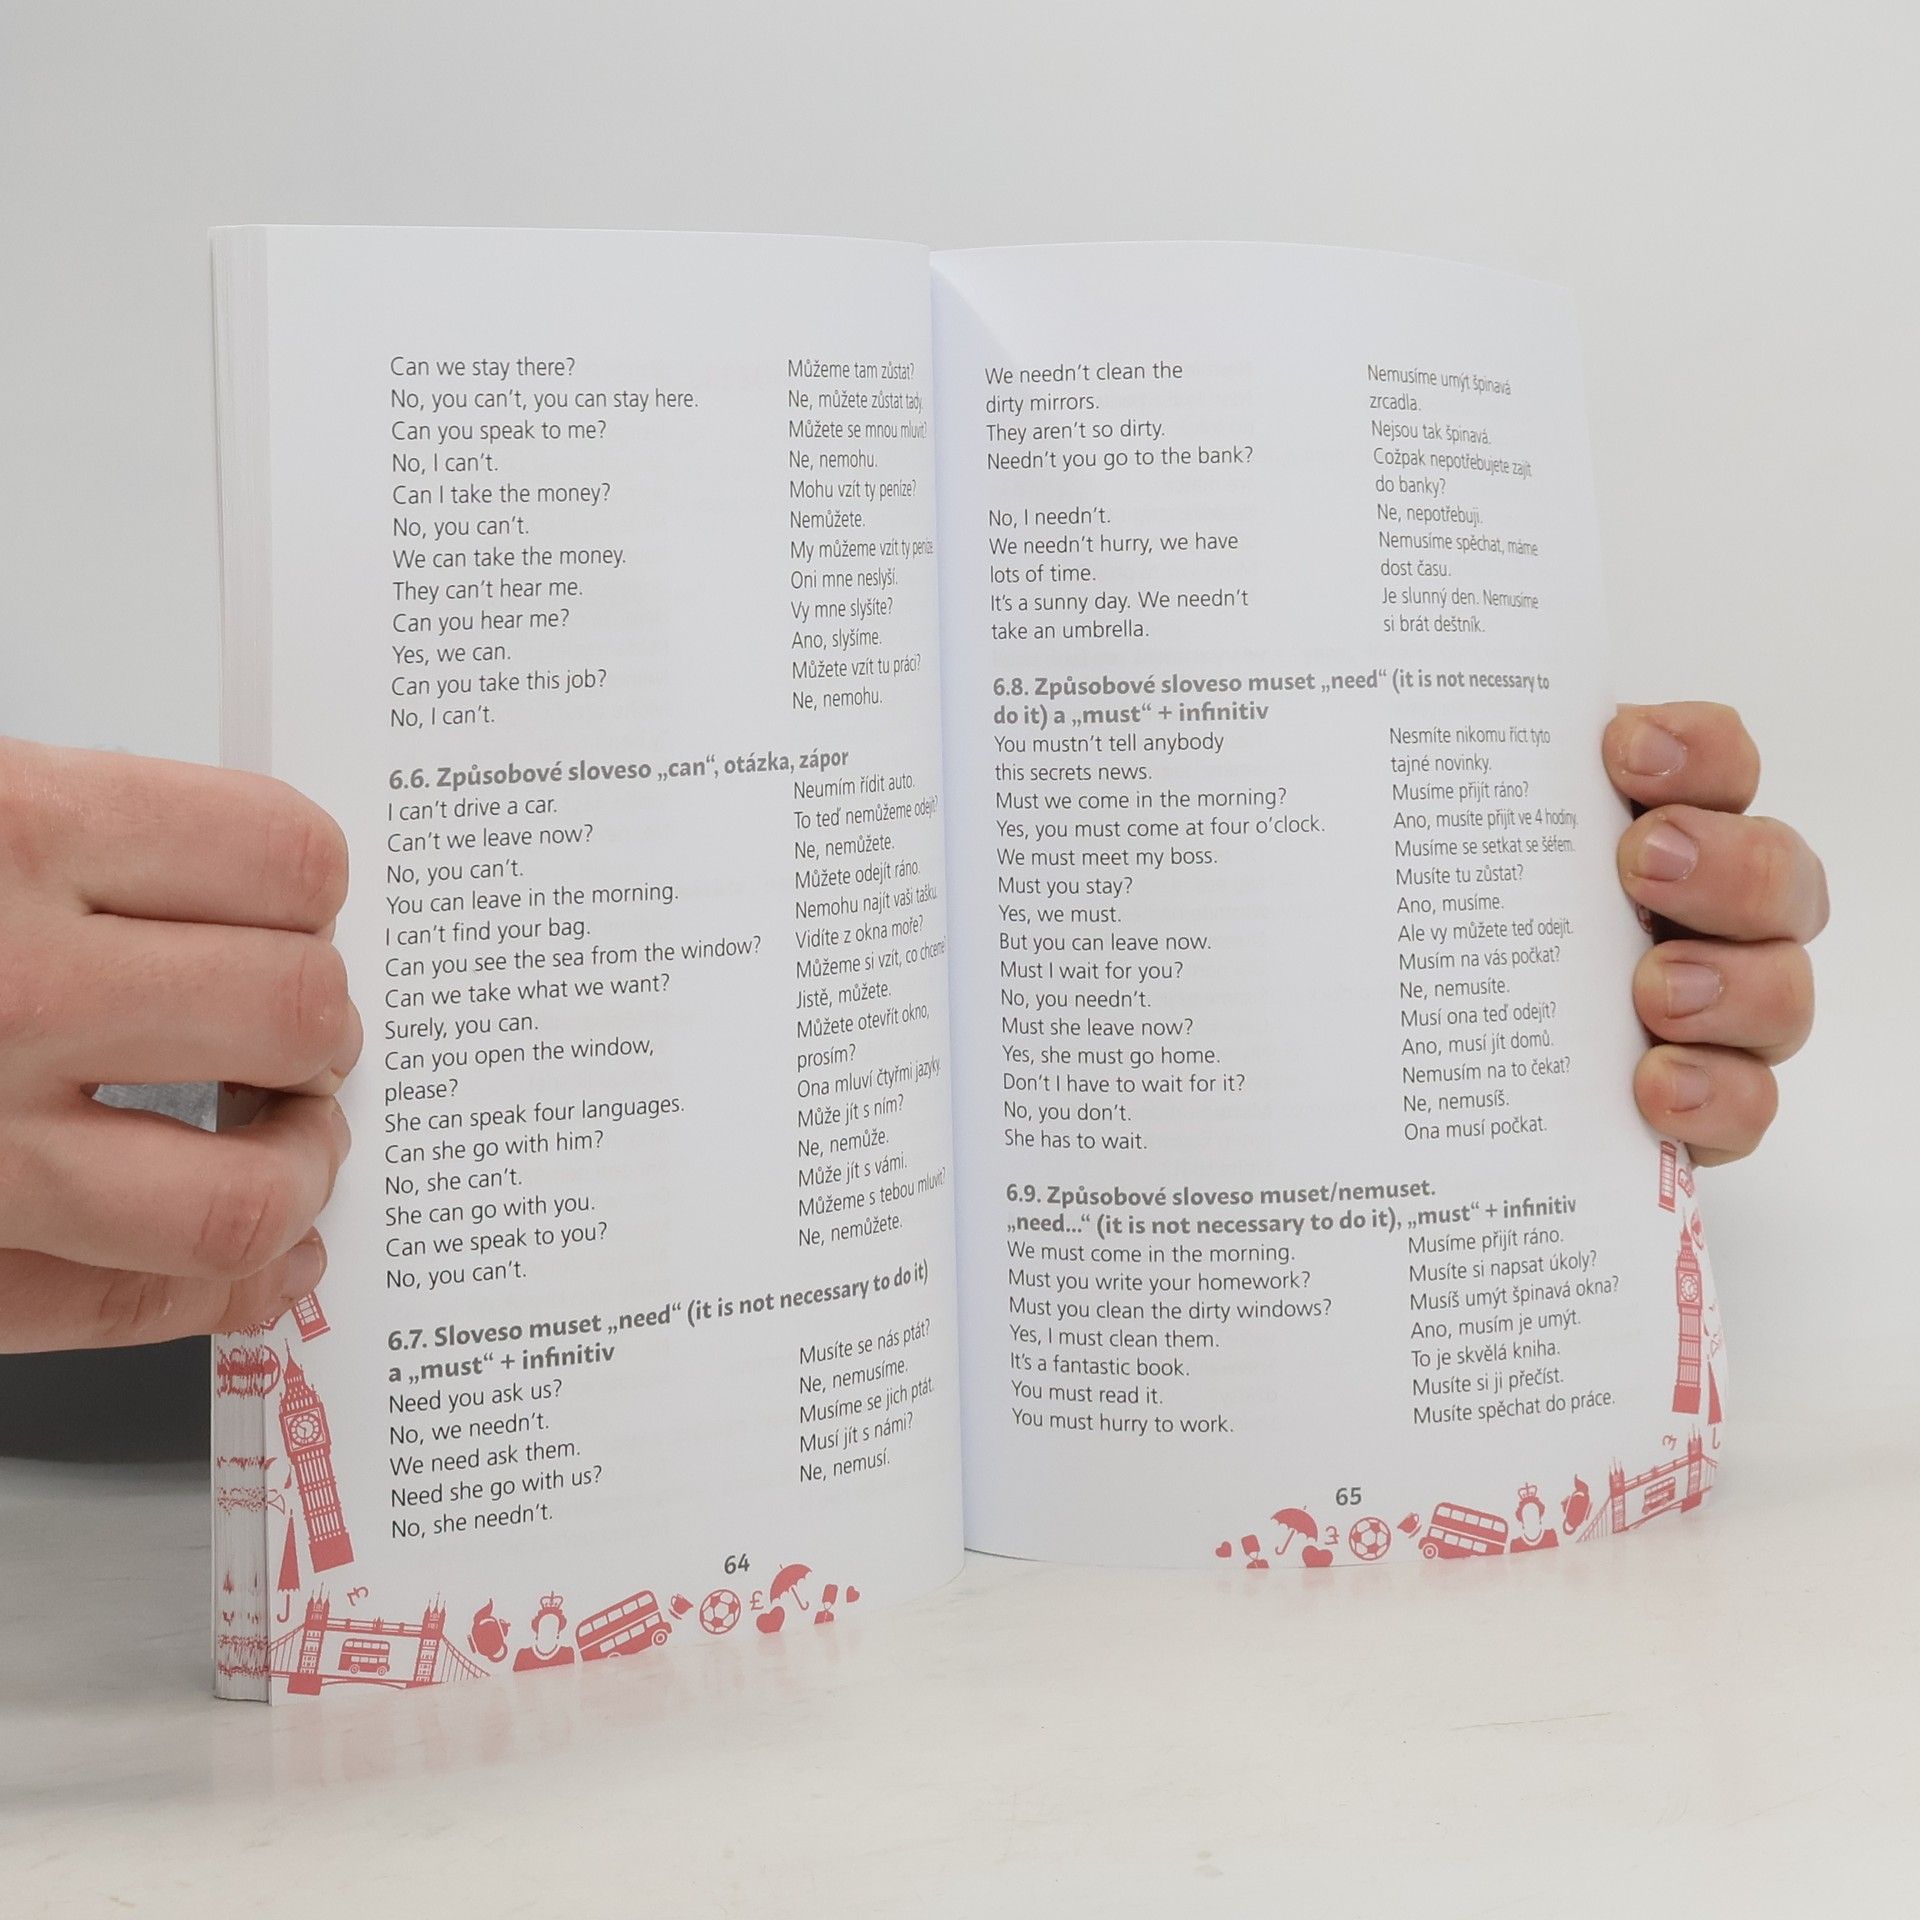 Can we stay there? Můžeme tam zůstat?
No, you can't, you can stay here. Ne, můžete zůstat tady.
Can you speak to me? Můžete se mnou mluvit?
No, I can't. Ne, nemohu.
Can I take the money? Mohu vzít ty peníze?
No, you can't. Nemůžete.
We can take the money. My můžeme vzít ty peníze
They can't hear me. Oni mne neslyší.
Can you hear me? Vy mne slyšíte?
Yes, we can. Ano, slyšíme.
Can you take this job? Můžete vzít tu práci?
No, I can't. Ne, nemohu.
6.6. Způsobové sloveso „can“, otázka, zápor
I can't drive a car. Neumím řídit auto.
Can't we leave now? To teď nemůžeme odejít?
No, you can't. Ne, nemůžete.
You can leave in the morning. Můžete odejít ráno.
I can't find your bag. Nemohu najít vaši tašku.
Can you see the sea from the window? Vidíte z okna moře?
Can we take what we want? Můžeme si vzít, co chceme?
Surely, you can. Jistě, můžete.
Can you open the window, Můžete otevřít okno,
please? prosím?
She can speak four languages. Ona mluví čtyřmi jazyky.
Can she go with him? Může jít s ním?
No, she can't. Ne, nemůže.
She can go with you. Může jít s vámi.
Can we speak to you? Můžeme s tebou mluvit?
No, you can't. Ne, nemůžete.
6.7. Sloveso muset „need“ (it is not necessary to do it)
a „must“ + infinitiv
Need you ask us? Musíte se nás ptát?
No, we needn't. Ne, nemusíme.
We need ask them. Musíme se jich ptát.
Need she go with us? Musí jít s námi?
No, she needn't. Ne, nemusí.
64
We needn't clean the Nemusíme umýt špinavá
dirty mirrors. zrcadla.
They aren't so dirty. Nejsou tak špinavá.
Needn't you go to the bank? Cožpak nepotřebujete zajít
do banky?
No, I needn't. Ne, nepotřebuji.
We needn't hurry, we have Nemusíme spěchat, máme
lots of time. dost času.
It's a sunny day. We needn't Je slunný den. Nemusíme
take an umbrella. si brát deštník.
6.8. Způsobové sloveso muset „need“ (it is not necessary to
do it) a „must“ + infinitiv
You mustn't tell anybody Nesmíte nikomu říct tyto
this secrets news. tajné novinky.
Must we come in the morning? Musíme přijít ráno?
Yes, you must come at four o'clock. Ano, musíte přijít ve 4 hodiny.
We must meet my boss. Musíme se setkat se šéfem.
Must you stay? Musíte tu zůstat?
Yes, we must. Ano, musíme.
But you can leave now. Ale vy můžete teď odejít.
Must I wait for you? Musím na vás počkat?
No, you needn't. Ne, nemusíte.
Must she leave now? Musí ona teď odejít?
Yes, she must go home. Ano, musí jít domů.
Don't I have to wait for it? Nemusím na to čekat?
No, you don't. Ne, nemusíš.
She has to wait. Ona musí počkat.
6.9. Způsobové sloveso muset/nemuset.
„need...“ (it is not necessary to do it), „must“ + infinitiv
We must come in the morning. Musíme přijít ráno.
Must you write your homework? Musíte si napsat úkoly?
Must you clean the dirty windows? Musíš umýt špinavá okna?
Yes, I must clean them. Ano, musím je umýt.
It's a fantastic book. To je skvělá kniha.
You must read it. Musíte si ji přečíst.
You must hurry to work. Musíte spěchat do práce.
65